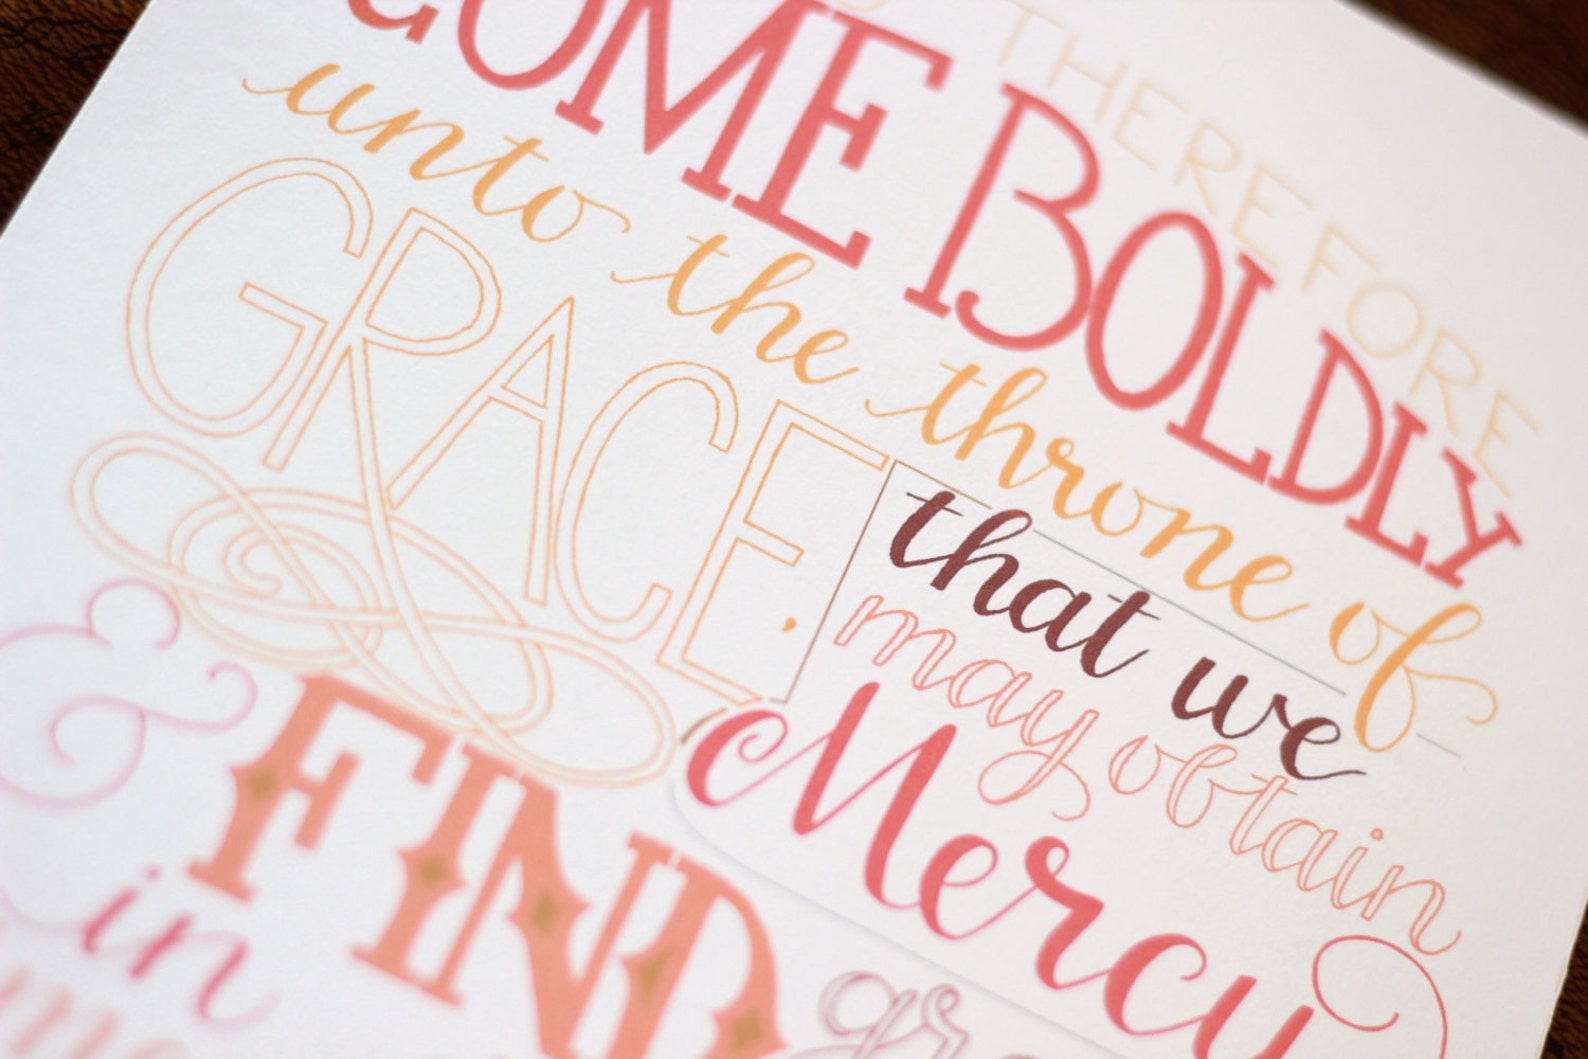 THEREFORE
COME BOLDLY
unto the throne of
GRACE,
that we
may obtain
Mercy
& FIND
in